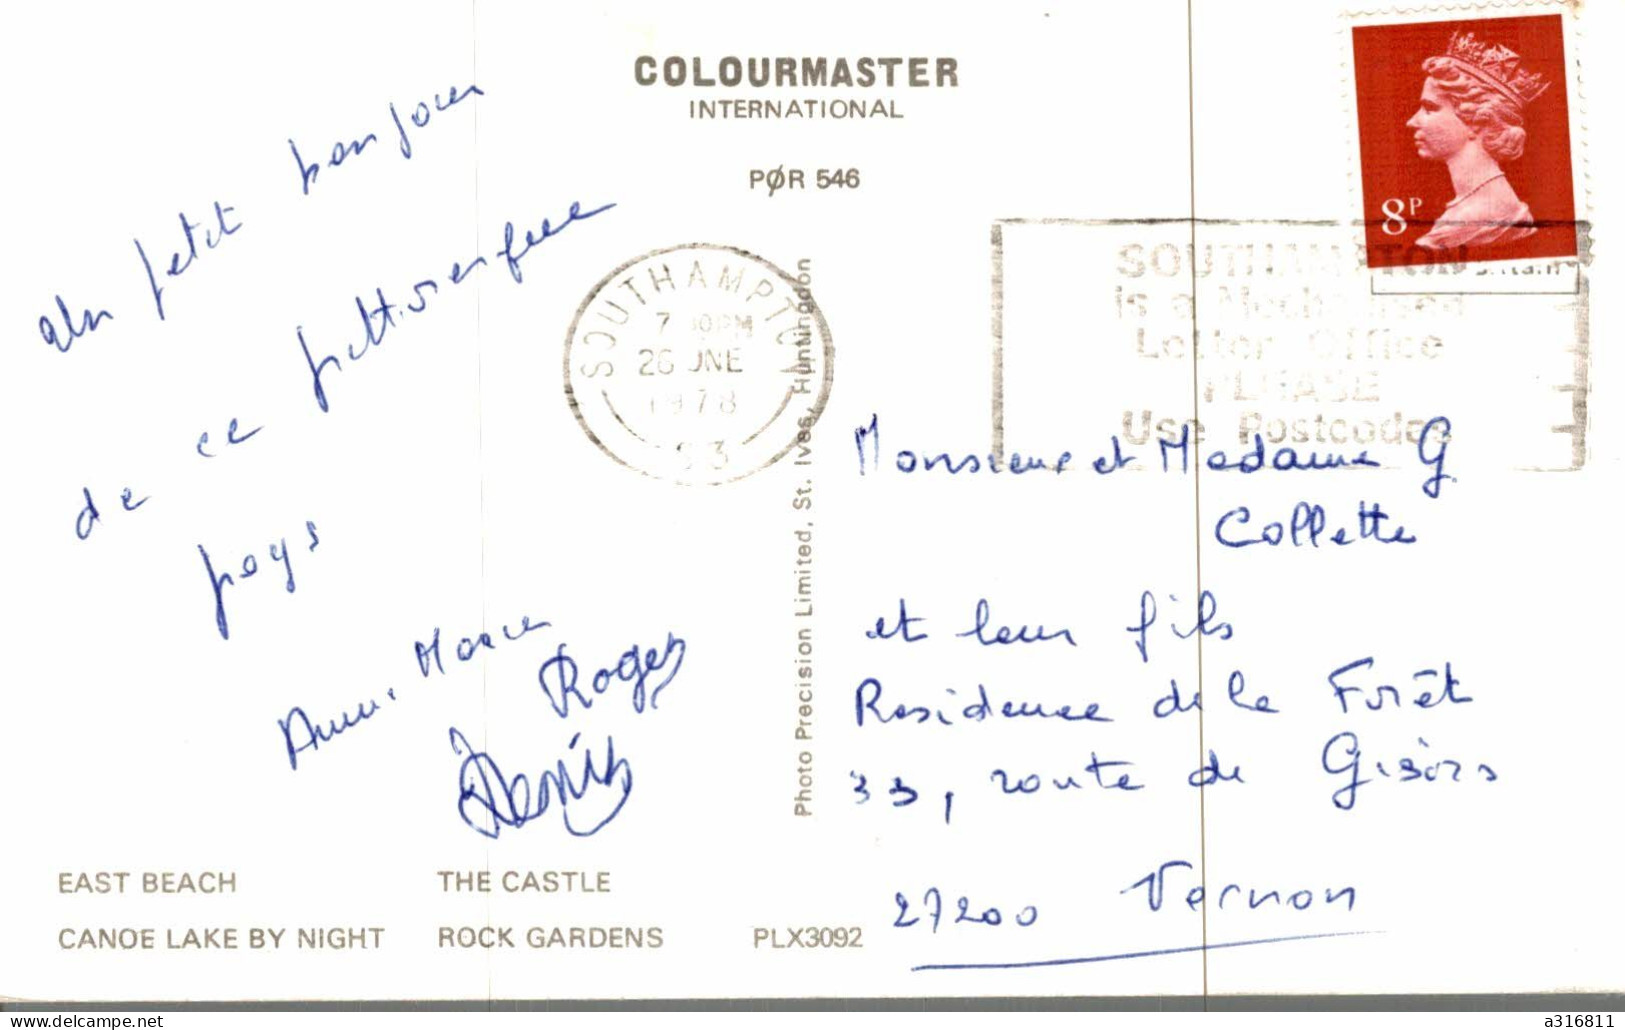 COLOURMASTER
INTERNATIONAL
PØR 546
8P
SOUTHAMPTON
7 30PM
26 JNE
1978
S3
SOUTHAMPTON
is a Mechanised
Letter Office
PLEASE
Use Postcodes
Un petit bonjour
de ce pittoresque
pays
Anne-Marie
Roger
Denis
Photo Precision Limited, St. Ives, Huntingdon
Monsieur et Madame G
Collette
et leur fils
Residence de la Forêt
33, route de Gisors
27200 Vernon
EAST BEACH THE CASTLE
CANOE LAKE BY NIGHT ROCK GARDENS PLX3092
delcampe.net
a316811